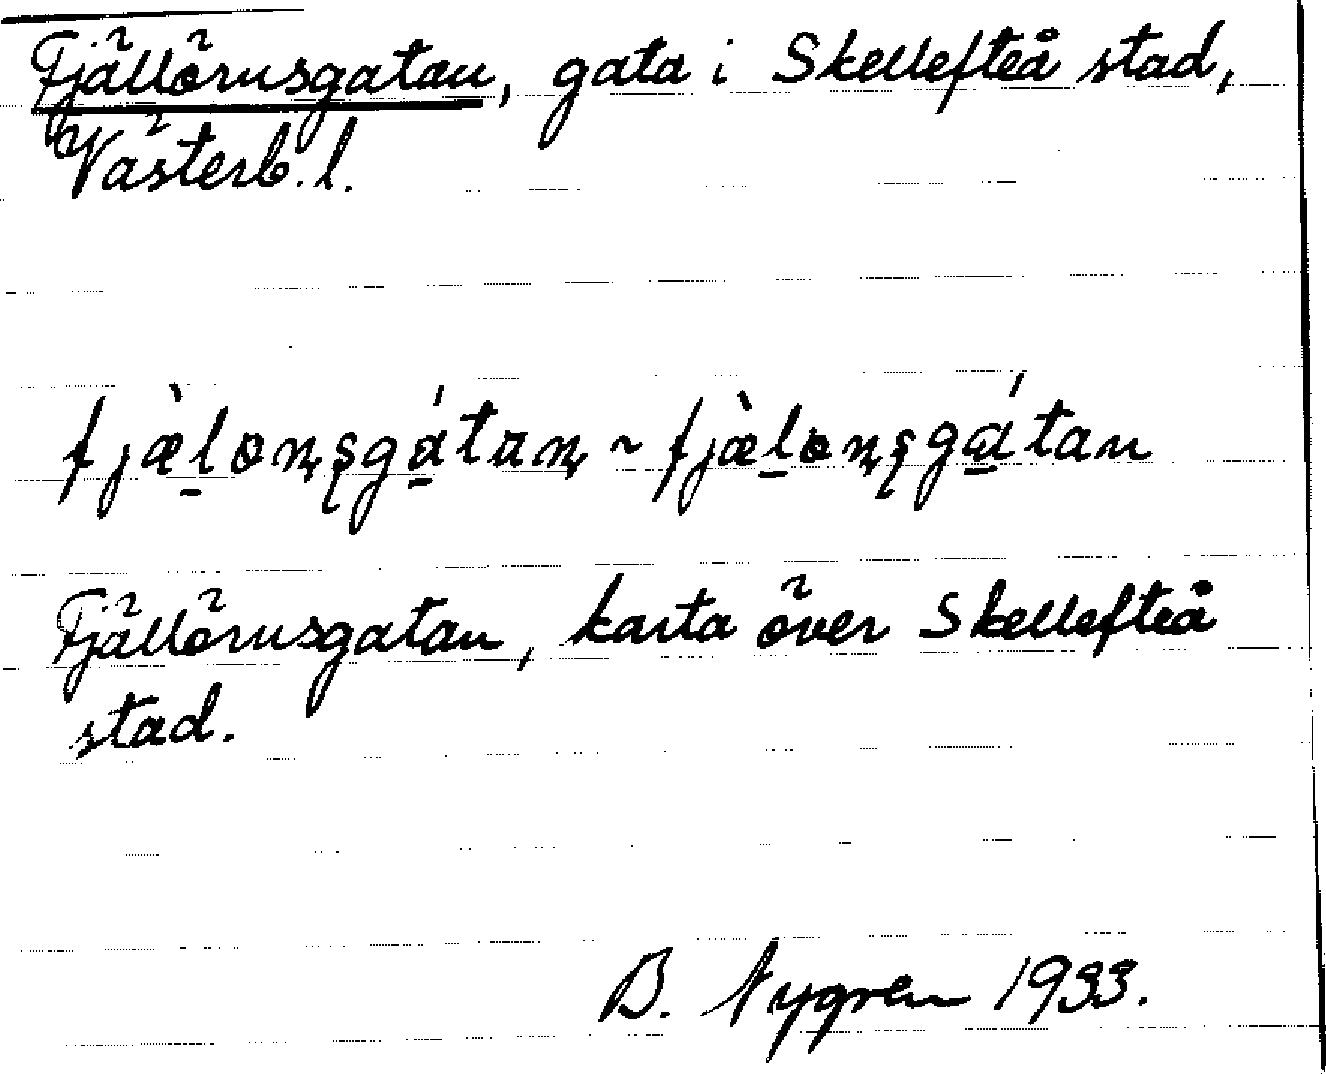 Fjällörnsgatan, gata i Skellefteå stad,
Västerb. l.
fjæ̀l̠ɷɳʂgá̠taɳ ~ fjæ̀l̠ɷɳʂgá̠tan
Fjällörnsgatan, karta över Skellefteå
stad.
B. Nygren 1933.